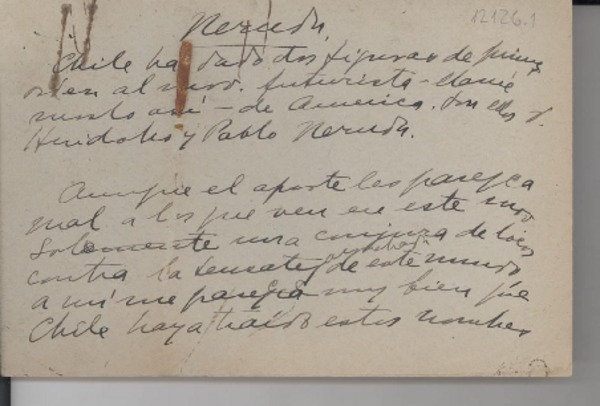 Neruda
12126.1
Chile ha dado dos figuras de primer
orden al mov. futurista - llamé
moslo así - de America. Son ellos V.
Huidobro y Pablo Neruda.
Aunque el aporte les parezca
mal a los que ven en este mov
solamente una conjura de locos
contra la sensatez de este mundo
a mí me parece muy bien que
Chile haya traído estos nombres